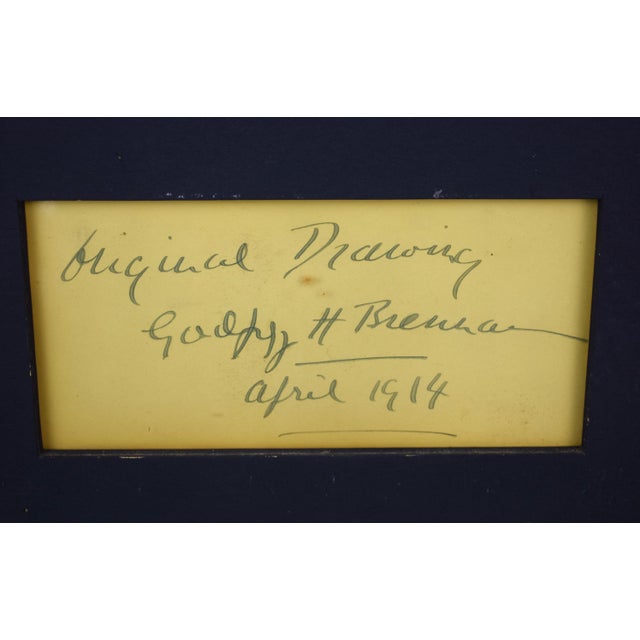 Original Drawing
Godfrey H Brennan
April 1914